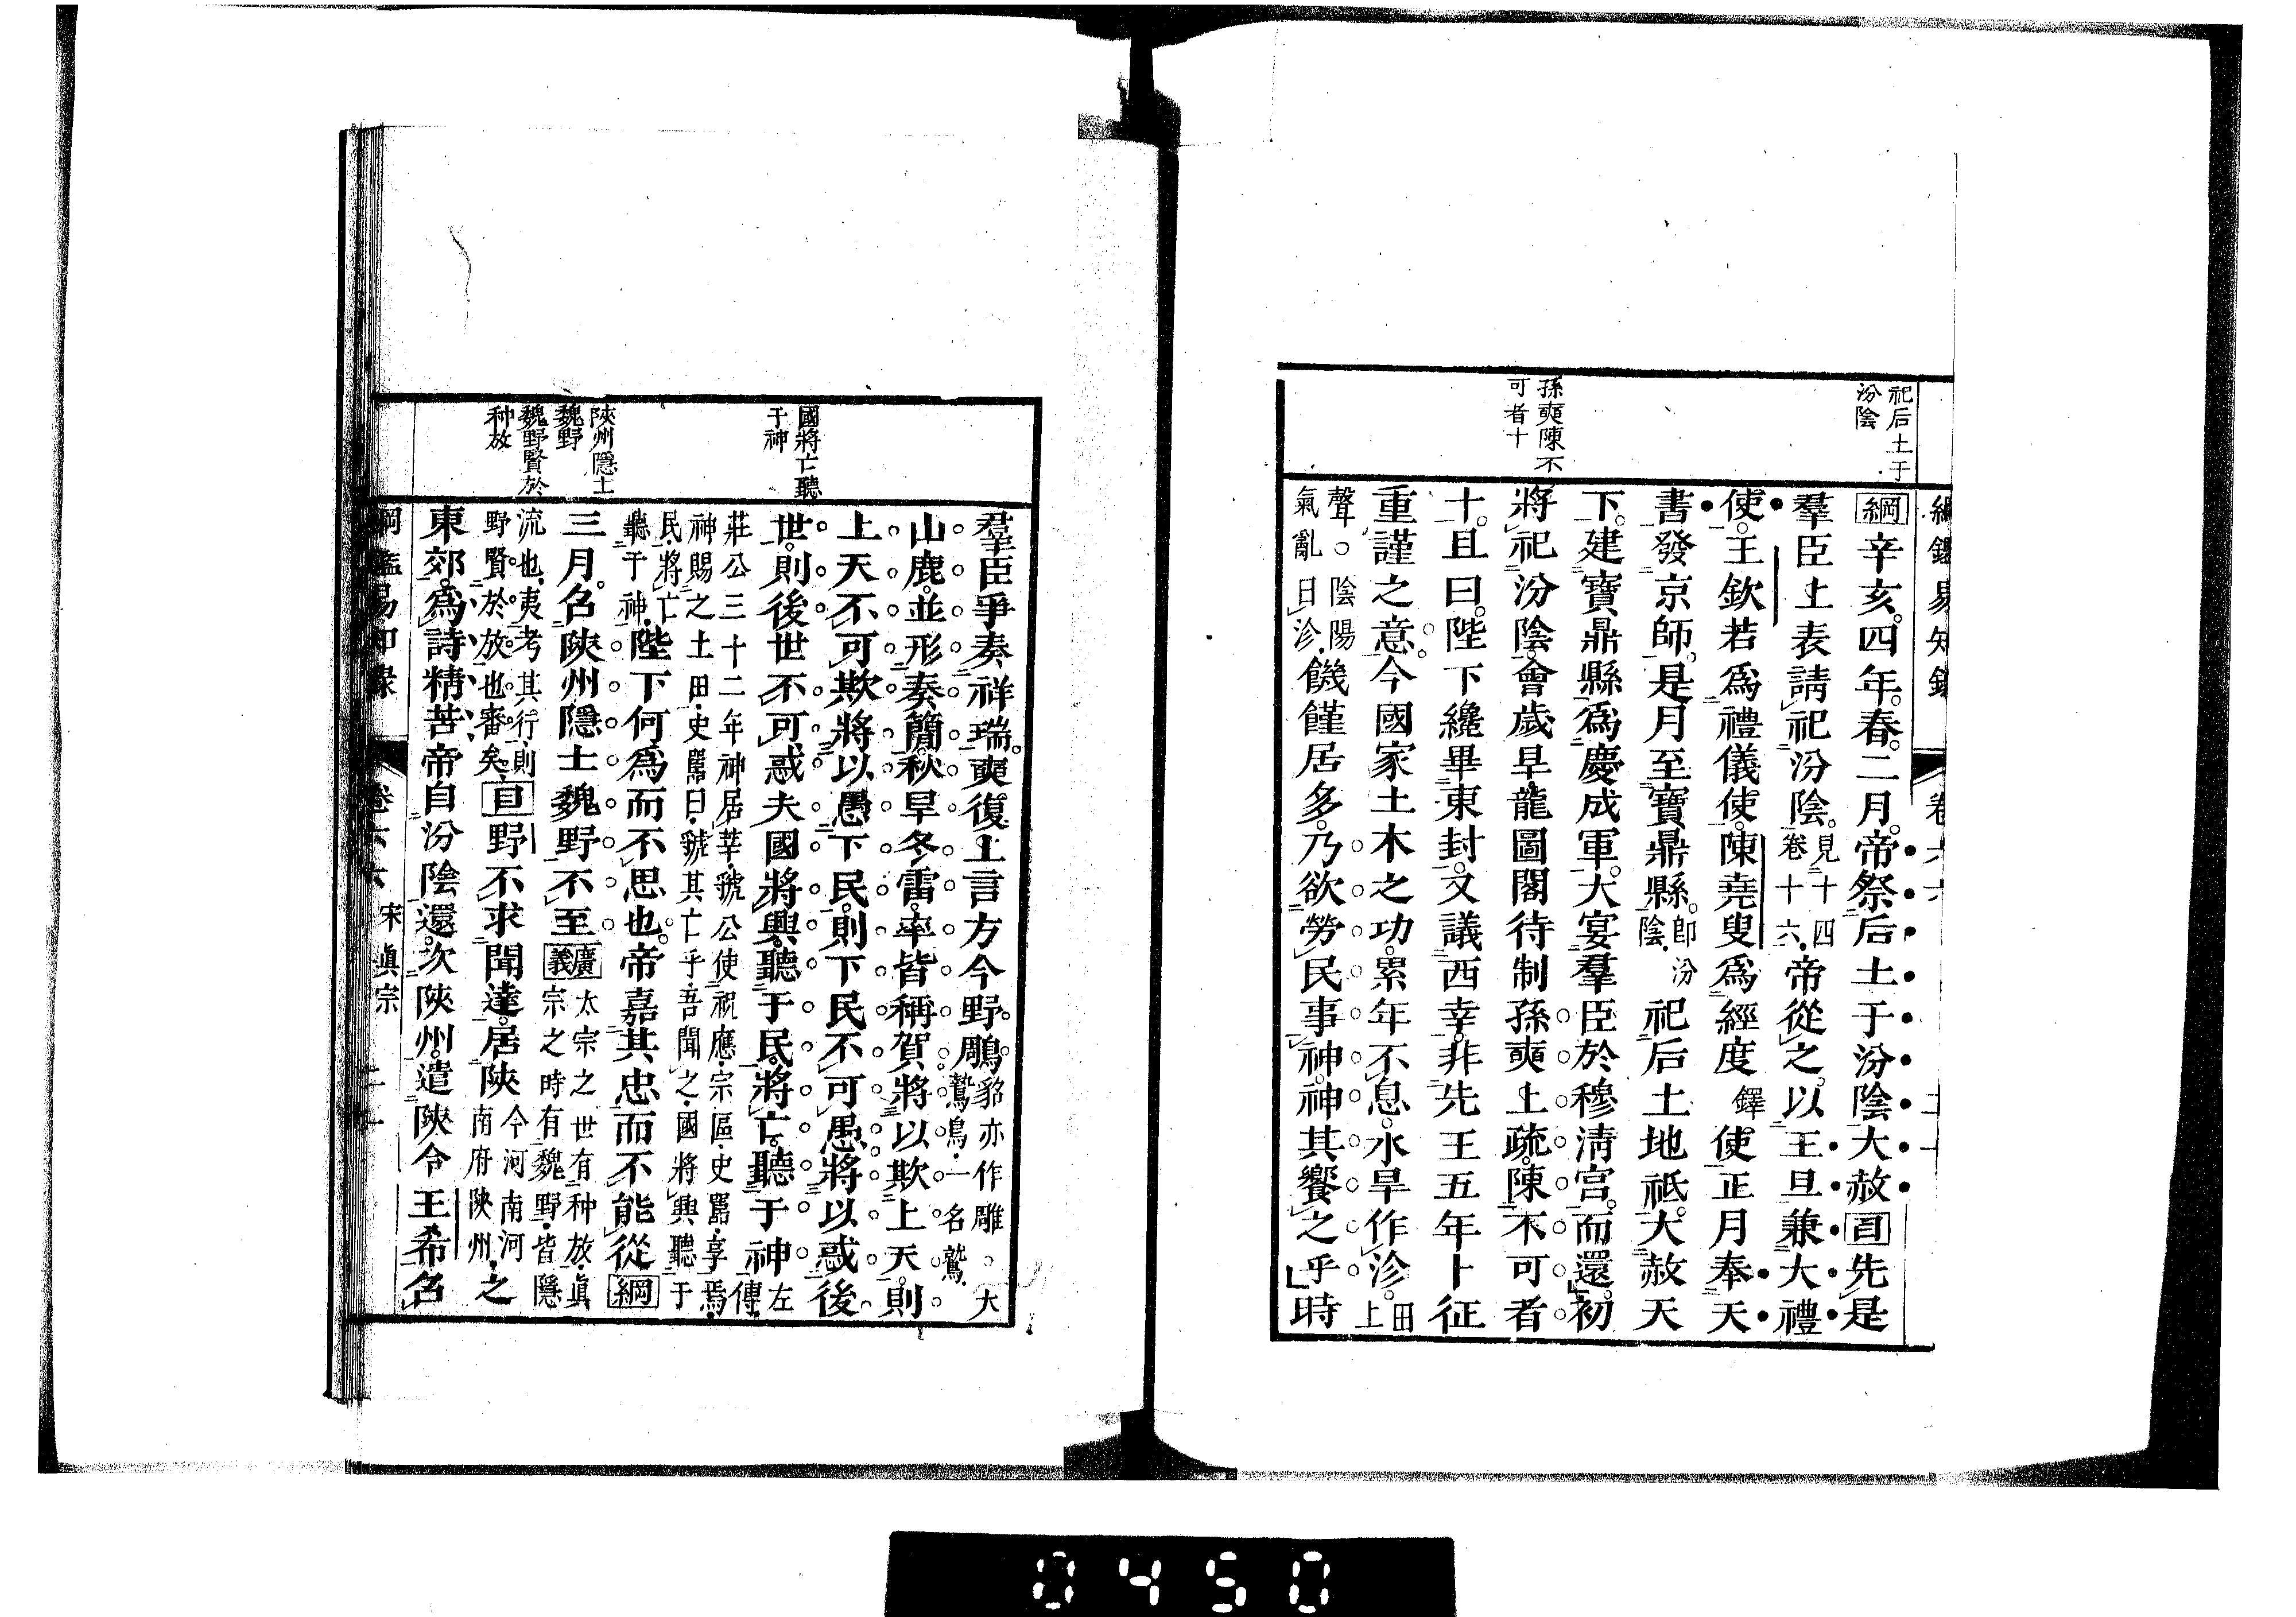 祀后土于
汾陰
孫奭陳不
可者十
綱辛亥。四年。春。二月。帝祭后土于汾陰大赦目先是
羣臣上表請祀汾陰。見十四卷十六。帝從之。以王旦兼大禮
使。王欽若爲禮儀使。陳堯叟爲經度鐸使正月奉天
書發京師。是月至寶鼎縣。卽汾陰。祀后土地祇。大赦天
下。建寶鼎縣爲慶成軍。大宴羣臣於穆清宮。而還。初
將祀汾陰。會歲旱龍圖閣待制孫奭上疏。陳不可者
十。且曰。陛下纔畢東封。又議西幸。非先王五年卜征
重謹之意。今國家土木之功。累年不息。水旱作沴。田上
聲。陰陽氣亂日沴。饑饉居多。乃欲勞民事神。神其饗之乎時
國將亡聽
于神
陝州隱士
魏野
魏野賢於
种放
羣臣爭奏祥瑞。奭復上言方今野鵰豹亦作雕。大鷙鳥。一名鷲。
山鹿。並形奏簡。秋旱冬雷。率皆稱賀。將以欺上天。則
上天不可欺。將以愚下民。則下民不可愚。將以惑後
世。則後世不可惑。夫國將興。聽于民。將亡。聽于神左傳
莊公三十二年神居莘。虢公使祝應。宗區。史嚚。享焉。神賜之土田。史嚚曰。虢其亡乎。吾聞之。國將興聽于
民。將亡聽于神。陛下何爲而不思也。帝嘉其忠而不能從綱
三月。召陝州隱士魏野不至廣義太宗之世有种放。眞宗之時有魏野。皆隱
流也。夷考其行。則野賢於放也審矣。目野不求聞達。居陝今河南河南府陝州。之
東郊。爲詩精苦帝自汾陰還。次陝州。遣陝令王希召
卷六六 宋眞宗